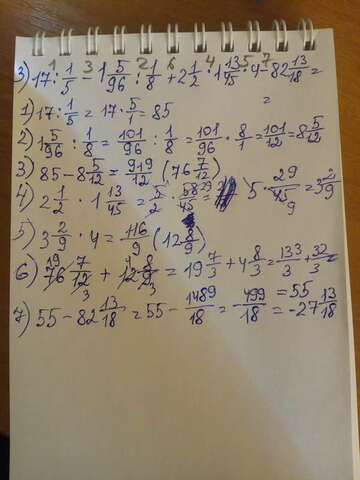 1 3 2 6 4 5 7
3) 17 : 1/5 - 1 5/96 : 1/8 + 2 1/2 · 1 13/45 · 4 - 82 13/18 =
=
1) 17 : 1/5 = 17 · 5/1 = 85
2) 1 5/96 : 1/8 = 101/96 : 1/8 = 101/96 · 8/1 = 101/12 = 8 5/12
3) 85 - 8 5/12 = 919/12 (76 7/12)
4) 2 1/2 · 1 13/45 = 5/2 · 58 29/45 = 5 · 29/45 9 = 3 2/9
5) 3 2/9 · 4 = 116/9 (12 8/9)
6) 19 76 7/12 3 + 4 12 8/9 3 = 19 7/3 + 4 8/3 = 133/3 + 32/3
= 55
7) 55 - 82 13/18 = 55 - 1489/18 = - 499/18 = -27 13/18